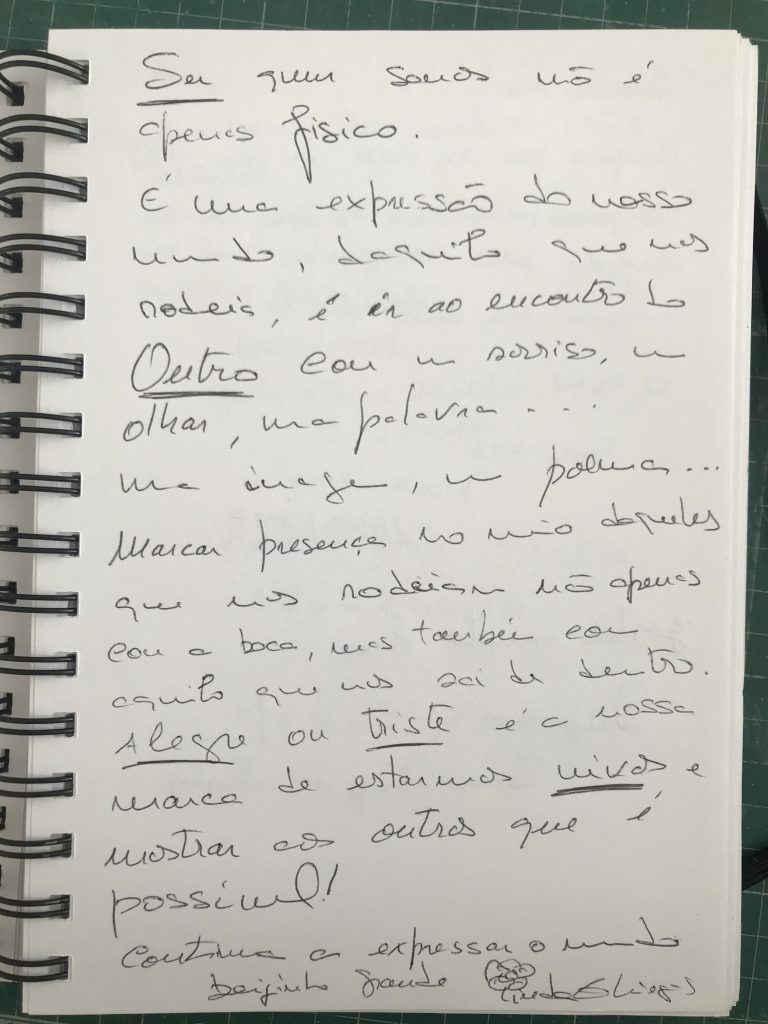 Ser quem somos não é
apenas físico.
É uma expressão do nosso
mundo, daquilo que nos
rodeia, é ir ao encontro do
Outro com um sorriso, um
olhar, uma palavra...
uma imagem, um poema...
Marcar presença no meio daqueles
que nos rodeiam não apenas
com a boca, mas também com
aquilo que nos sai de dentro.
Alegre ou triste é a nossa
marca de estarmos vivos e
mostrar aos outros que é
possível!
Continua a expressar o mundo
Beijinho grande